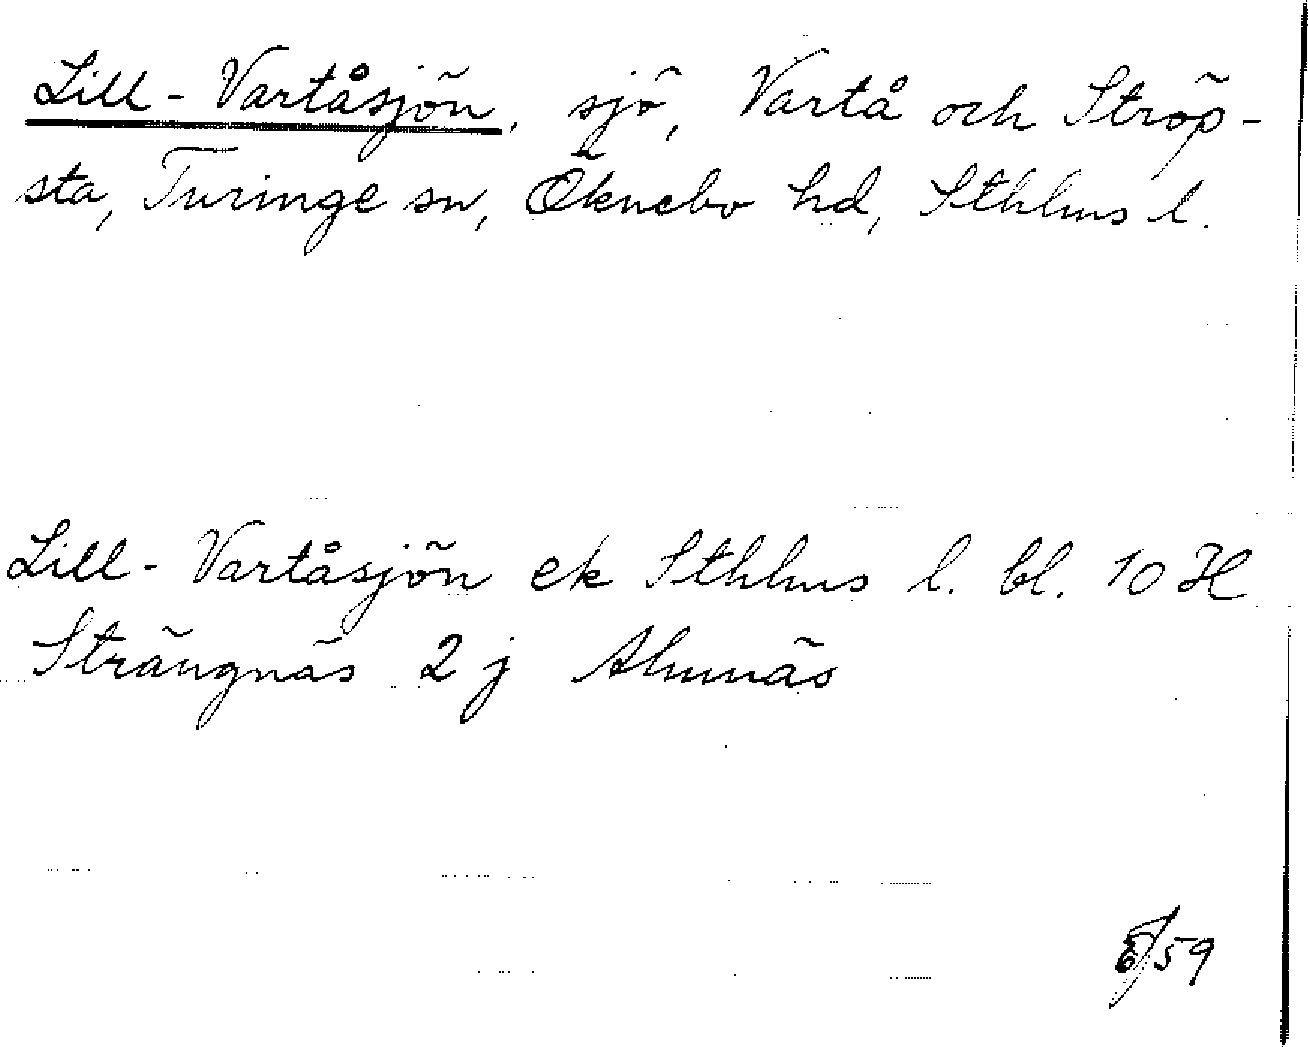 Lill-Vartåsjön, sjö, Vartå och Ströp-
sta, Turinge sn, Öknebo hd, Sthlms l.
Lill-Vartåsjön ek Sthlms l. bl. 10 H
Strängnäs 2 j Almnäs
/59